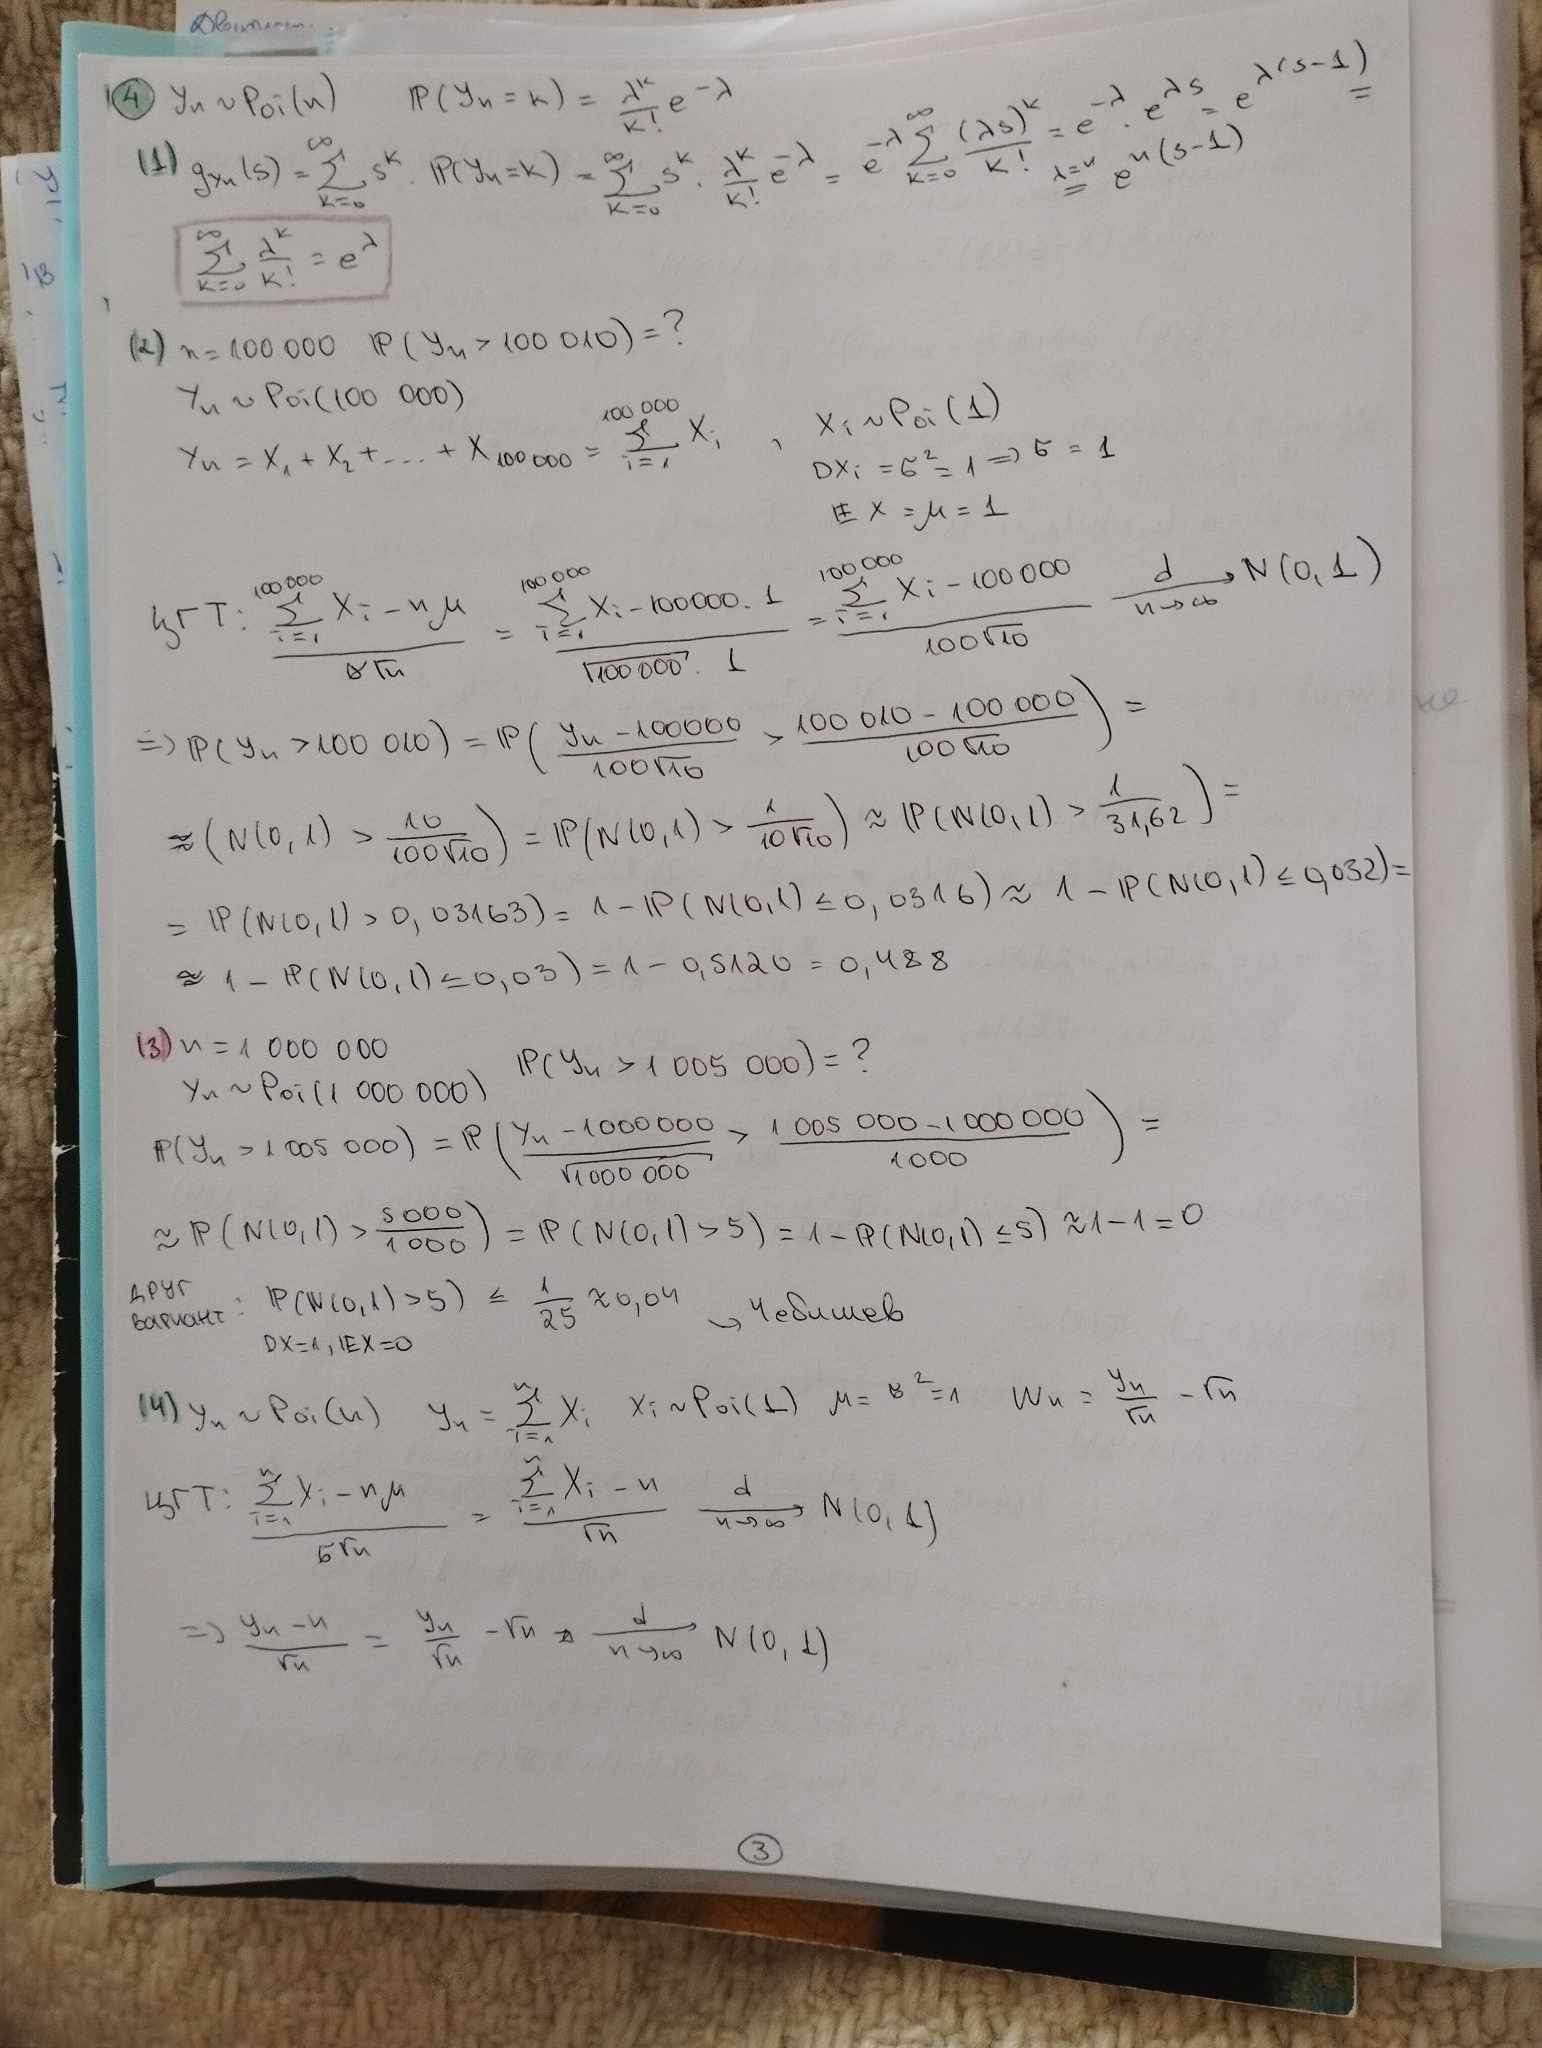 ④ Yn ~ Poi(n) P(Yn = k) = λ^k/k! e^-λ
(1) gYn(s) = ∞Σk=0 s^k . P(Yn=k) = ∞Σk=0 s^k . λ^k/k! e^-λ = e^-λ ∞Σk=0 (λs)^k/k! = e^-λ . e^λs = e^λ(s-1) =
λ=n = e^n(s-1)
∞Σk=0 λ^k/k! = e^λ
(2) n = 100 000 P(Yn > 100 010) = ?
Yn ~ Poi(100 000)
Yn = X1 + X2 + ... + X100 000 = 100 000Σi=1 Xi , Xi ~ Poi(1)
DXi = σ^2 = 1 => σ = 1
EX = μ = 1
ЦГТ: (100 000Σi=1 Xi - nμ)/(σ√n) = (100 000Σi=1 Xi - 100000 . 1)/(√100 000 . 1) = (100 000Σi=1 Xi - 100 000)/(100√10) d→n→∞ N(0,1)
=> P(Yn > 100 010) = P((Yn - 100000)/(100√10) > (100 010 - 100 000)/(100√10)) =
≈ (N(0,1) > 10/(100√10)) = P(N(0,1) > 1/(10√10)) ≈ P(N(0,1) > 1/31,62) =
= P(N(0,1) > 0,03163) = 1 - P(N(0,1) ≤ 0,0316) ≈ 1 - P(N(0,1) ≤ 0,032) =
≈ 1 - P(N(0,1) ≤ 0,03) = 1 - 0,5120 = 0,488
(3) n = 1 000 000
Yn ~ Poi(1 000 000) P(Yn > 1 005 000) = ?
P(Yn > 1 005 000) = P((Yn - 1000000)/√1000 000 > (1 005 000 - 1 000 000)/1000) =
≈ P(N(0,1) > 5000/1000) = P(N(0,1) > 5) = 1 - P(N(0,1) ≤ 5) ≈ 1 - 1 = 0
друг
вариант: P(N(0,1) > 5) ≤ 1/25 ≈ 0,04 → Чебишев
DX=1, EX=0
(4) Yn ~ Poi(n) Yn = nΣi=1 Xi Xi ~ Poi(1) μ = σ^2 = 1 Wn = Yn/√n - √n
ЦГТ: (nΣi=1 Xi - nμ)/(σ√n) = (nΣi=1 Xi - n)/√n d→n→∞ N(0,1)
=> (Yn - n)/√n = Yn/√n - √n d→n→∞ N(0,1)
③